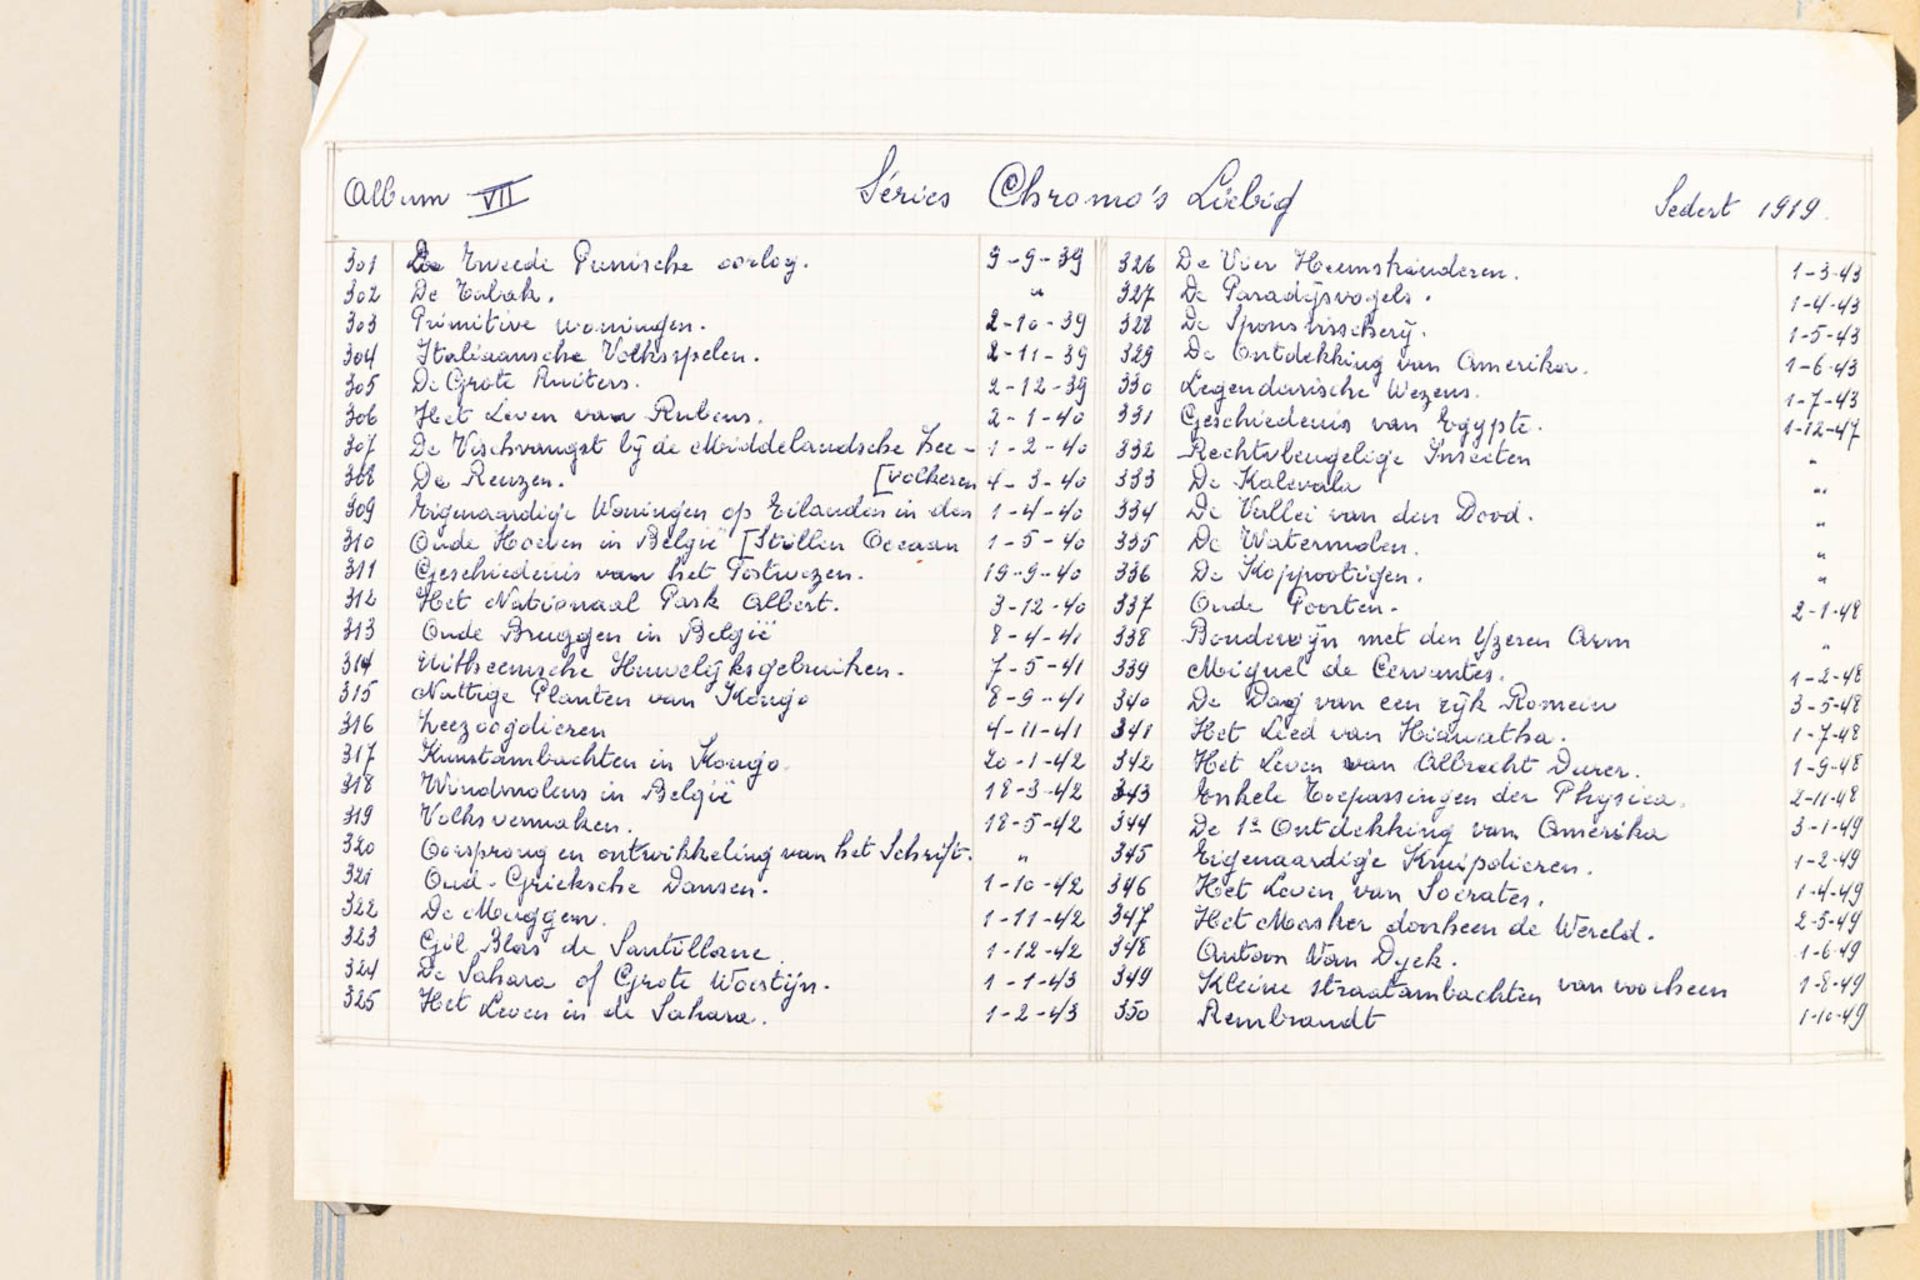 Album VII Séries Chromo's Liebig Sedert 1919.
301 De Tweede Punische oorlog. 9-9-39
302 De Tabak. "
303 Primitive woningen. 2-10-39
304 Italiaansche Volksspelen. 2-11-39
305 De Grote Ruiters. 2-12-39
306 Het Leven van Rubens. 2-1-40
307 De Vischvangst bij de Middelandsche Zee- 1-2-40
308 De Reuzen. [volkeren 4-3-40
309 Eigenaardige Woningen op Eilanden in den 1-4-40
310 Oude Hoeven in België [Stillen Oceaan 1-5-40
311 Geschiedenis van het Postwezen. 19-9-40
312 Het Nationaal Park Albert. 3-12-40
313 Oude Bruggen in België 8-4-41
314 Uitheemsche Huwelijksgebruiken. 7-5-41
315 Nuttige Planten van Kongo 8-9-41
316 Zeezoogdieren 4-11-41
317 Kunstambachten in Kongo 20-1-42
318 Windmolens in België 18-3-42
319 Volksvermaken. 18-5-42
320 Oorsprong en ontwikkeling van het Schrift. "
321 Oud-Grieksche Dansen. 1-10-42
322 De Muggen. 1-11-42
323 Gil Blas de Santillane. 1-12-42
324 De Sahara of Grote Woestijn. 1-1-43
325 Het Leven in de Sahara. 1-2-43
326 De Vier Heemskinderen. 1-3-43
327 De Paradijsvogels. 1-4-43
328 De Sponsvisscherij. 1-5-43
329 De Ontdekking van Amerika. 1-6-43
330 Legendarische Wezens. 1-7-43
331 Geschiedenis van Egypte. 1-12-47
332 Rechtvleugelige Insecten "
333 De Kalevala "
334 De Vallei van den Dood. "
335 De Watermolen. "
336 De Koppootigen. "
337 Oude Poorten. 2-1-48
338 Boudewijn met den Yzeren Arm "
339 Miguel de Cervantes. 1-2-48
340 De Dag van een rijk Romein 3-5-48
341 Het Lied van Hiawatha. 1-7-48
342 Het Leven van Albrecht Durer. 1-9-48
343 Enkele Toepassingen der Physica. 2-11-48
344 De 1e Ontdekking van Amerika 3-1-49
345 Eigenaardige Kruipdieren. 1-2-49
346 Het Leven van Socrates. 1-4-49
347 Het Masker doorheen de Wereld. 2-5-49
348 Antoon Van Dyck. 1-6-49
349 Kleine straatambachten van voorheen 1-8-49
350 Rembrandt 1-10-49